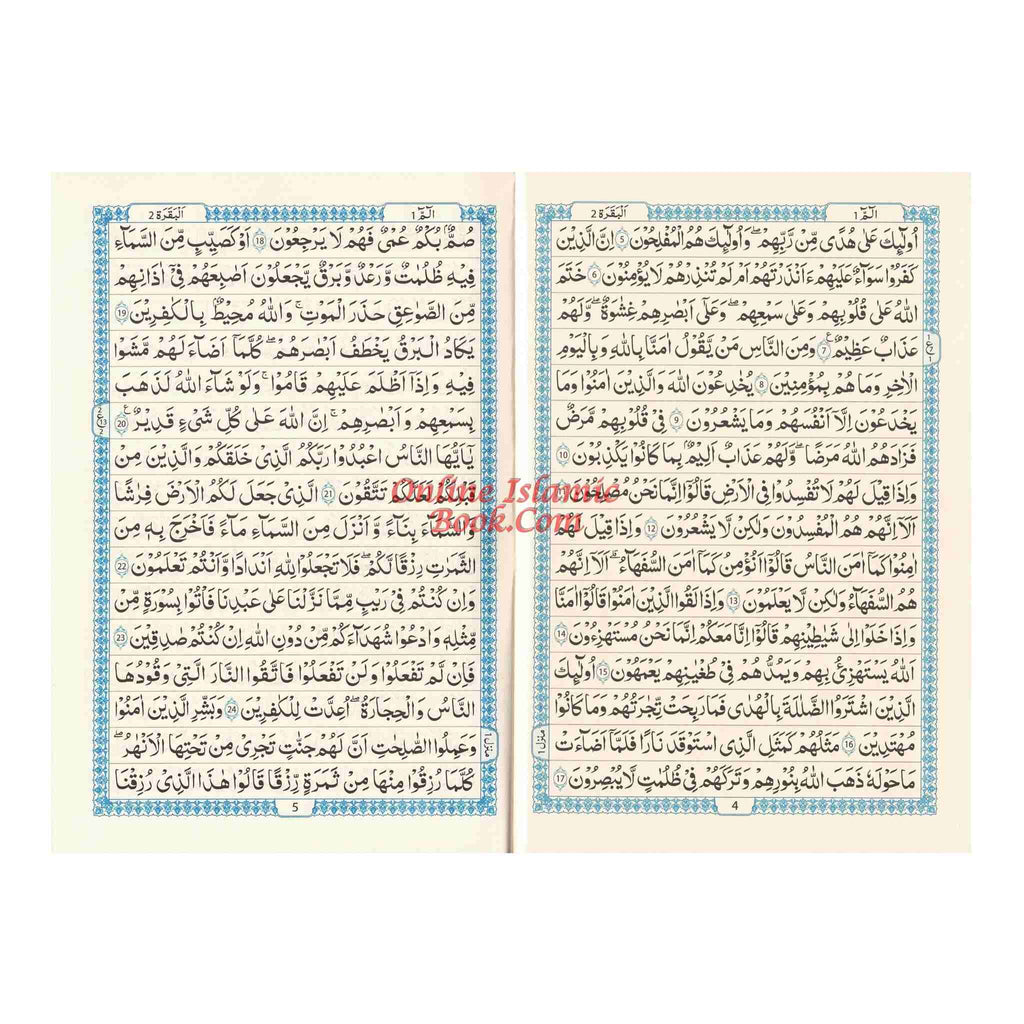 الٓمّٓ ١
اَلْبَقَرَة 2
اُولٰٓئِكَ عَلٰى هُدًى مِّنْ رَّبِّهِمْ ۖ وَ اُولٰٓئِكَ هُمُ الْمُفْلِحُوْنَ 5 اِنَّ الَّذِيْنَ
كَفَرُوْا سَوَآءٌ عَلَيْهِمْ ءَاَنْذَرْتَهُمْ اَمْ لَمْ تُنْذِرْهُمْ لَا يُؤْمِنُوْنَ 6 خَتَمَ
اللّٰهُ عَلٰى قُلُوْبِهِمْ وَ عَلٰى سَمْعِهِمْ ۖ وَ عَلٰٓى اَبْصَارِهِمْ غِشَاوَةٌ ۖ وَّ لَهُمْ
عَذَابٌ عَظِيْمٌ 7 وَ مِنَ النَّاسِ مَنْ يَّقُوْلُ اٰمَنَّا بِاللّٰهِ وَ بِالْيَوْمِ
الْاٰخِرِ وَ مَا هُمْ بِمُؤْمِنِيْنَ 8 يُخٰدِعُوْنَ اللّٰهَ وَ الَّذِيْنَ اٰمَنُوْا وَ مَا
يَخْدَعُوْنَ اِلَّاۤ اَنْفُسَهُمْ وَ مَا يَشْعُرُوْنَ 9 فِيْ قُلُوْبِهِمْ مَّرَضٌ
فَزَادَهُمُ اللّٰهُ مَرَضًا ۖ وَ لَهُمْ عَذَابٌ اَلِيْمٌۢ بِمَا كَانُوْا يَكْذِبُوْنَ 10
وَ اِذَا قِيْلَ لَهُمْ لَا تُفْسِدُوْا فِي الْاَرْضِ قَالُوْۤا اِنَّمَا نَحْنُ مُصْلِحُوْنَ
اَلَاۤ اِنَّهُمْ هُمُ الْمُفْسِدُوْنَ وَ لٰكِنْ لَّا يَشْعُرُوْنَ 12 وَ اِذَا قِيْلَ لَهُمْ
اٰمِنُوْا كَمَاۤ اٰمَنَ النَّاسُ قَالُوْۤا اَنُؤْمِنُ كَمَاۤ اٰمَنَ السُّفَهَآءُ ۗ اَلَاۤ اِنَّهُمْ
هُمُ السُّفَهَآءُ وَ لٰكِنْ لَّا يَعْلَمُوْنَ 13 وَ اِذَا لَقُوا الَّذِيْنَ اٰمَنُوْا قَالُوْۤا اٰمَنَّا
وَ اِذَا خَلَوْا اِلٰى شَيٰطِيْنِهِمْ قَالُوْۤا اِنَّا مَعَكُمْ اِنَّمَا نَحْنُ مُسْتَهْزِءُوْنَ 14
اَللّٰهُ يَسْتَهْزِئُ بِهِمْ وَ يَمُدُّهُمْ فِيْ طُغْيَانِهِمْ يَعْمَهُوْنَ 15 اُولٰٓئِكَ
الَّذِيْنَ اشْتَرَوُا الضَّلٰلَةَ بِالْهُدٰى فَمَا رَبِحَتْ تِّجَارَتُهُمْ وَ مَا كَانُوْا
مُهْتَدِيْنَ 16 مَثَلُهُمْ كَمَثَلِ الَّذِي اسْتَوْقَدَ نَارًا فَلَمَّاۤ اَضَآءَتْ
مَا حَوْلَهٗ ذَهَبَ اللّٰهُ بِنُوْرِهِمْ وَ تَرَكَهُمْ فِيْ ظُلُمٰتٍ لَّا يُبْصِرُوْنَ 17
منزل ١
4
الٓمّٓ ١
اَلْبَقَرَة 2
صُمٌّۢ بُكْمٌ عُمْيٌ فَهُمْ لَا يَرْجِعُوْنَ 18 اَوْ كَصَيِّبٍ مِّنَ السَّمَآءِ
فِيْهِ ظُلُمٰتٌ وَّ رَعْدٌ وَّ بَرْقٌ يَجْعَلُوْنَ اَصَابِعَهُمْ فِيْۤ اٰذَانِهِمْ
مِّنَ الصَّوَاعِقِ حَذَرَ الْمَوْتِ ۚ وَ اللّٰهُ مُحِيْطٌۢ بِالْكٰفِرِيْنَ 19
يَكَادُ الْبَرْقُ يَخْطَفُ اَبْصَارَهُمْ ۖ كُلَّمَاۤ اَضَآءَ لَهُمْ مَّشَوْا
فِيْهِ وَ اِذَاۤ اَظْلَمَ عَلَيْهِمْ قَامُوْا ۚ وَ لَوْ شَآءَ اللّٰهُ لَذَهَبَ
بِسَمْعِهِمْ وَ اَبْصَارِهِمْ ۚ اِنَّ اللّٰهَ عَلٰى كُلِّ شَيْءٍ قَدِيْرٌ 20
يٰۤاَيُّهَا النَّاسُ اعْبُدُوْا رَبَّكُمُ الَّذِيْ خَلَقَكُمْ وَ الَّذِيْنَ مِنْ
قَبْلِكُمْ لَعَلَّكُمْ تَتَّقُوْنَ 21 الَّذِيْ جَعَلَ لَكُمُ الْاَرْضَ فِرَاشًا
وَّ السَّمَآءَ بِنَآءً وَّ اَنْزَلَ مِنَ السَّمَآءِ مَآءً فَاَخْرَجَ بِهٖ مِنَ
الثَّمَرٰتِ رِزْقًا لَّكُمْ ۖ فَلَا تَجْعَلُوْا لِلّٰهِ اَنْدَادًا وَّ اَنْتُمْ تَعْلَمُوْنَ 22
وَ اِنْ كُنْتُمْ فِيْ رَيْبٍ مِّمَّا نَزَّلْنَا عَلٰى عَبْدِنَا فَاْتُوْا بِسُوْرَةٍ مِّنْ
مِّثْلِهٖ وَ ادْعُوْا شُهَدَآءَكُمْ مِّنْ دُوْنِ اللّٰهِ اِنْ كُنْتُمْ صٰدِقِيْنَ 23
فَاِنْ لَّمْ تَفْعَلُوْا وَ لَنْ تَفْعَلُوْا فَاتَّقُوا النَّارَ الَّتِيْ وَقُوْدُهَا
النَّاسُ وَ الْحِجَارَةُ ۖ اُعِدَّتْ لِلْكٰفِرِيْنَ 24 وَ بَشِّرِ الَّذِيْنَ اٰمَنُوْا
وَ عَمِلُوا الصّٰلِحٰتِ اَنَّ لَهُمْ جَنّٰتٍ تَجْرِيْ مِنْ تَحْتِهَا الْاَنْهٰرُ ۖ
كُلَّمَا رُزِقُوْا مِنْهَا مِنْ ثَمَرَةٍ رِّزْقًا قَالُوْا هٰذَا الَّذِيْ رُزِقْنَا
منزل ١
5
Online Islamic
Book.Com